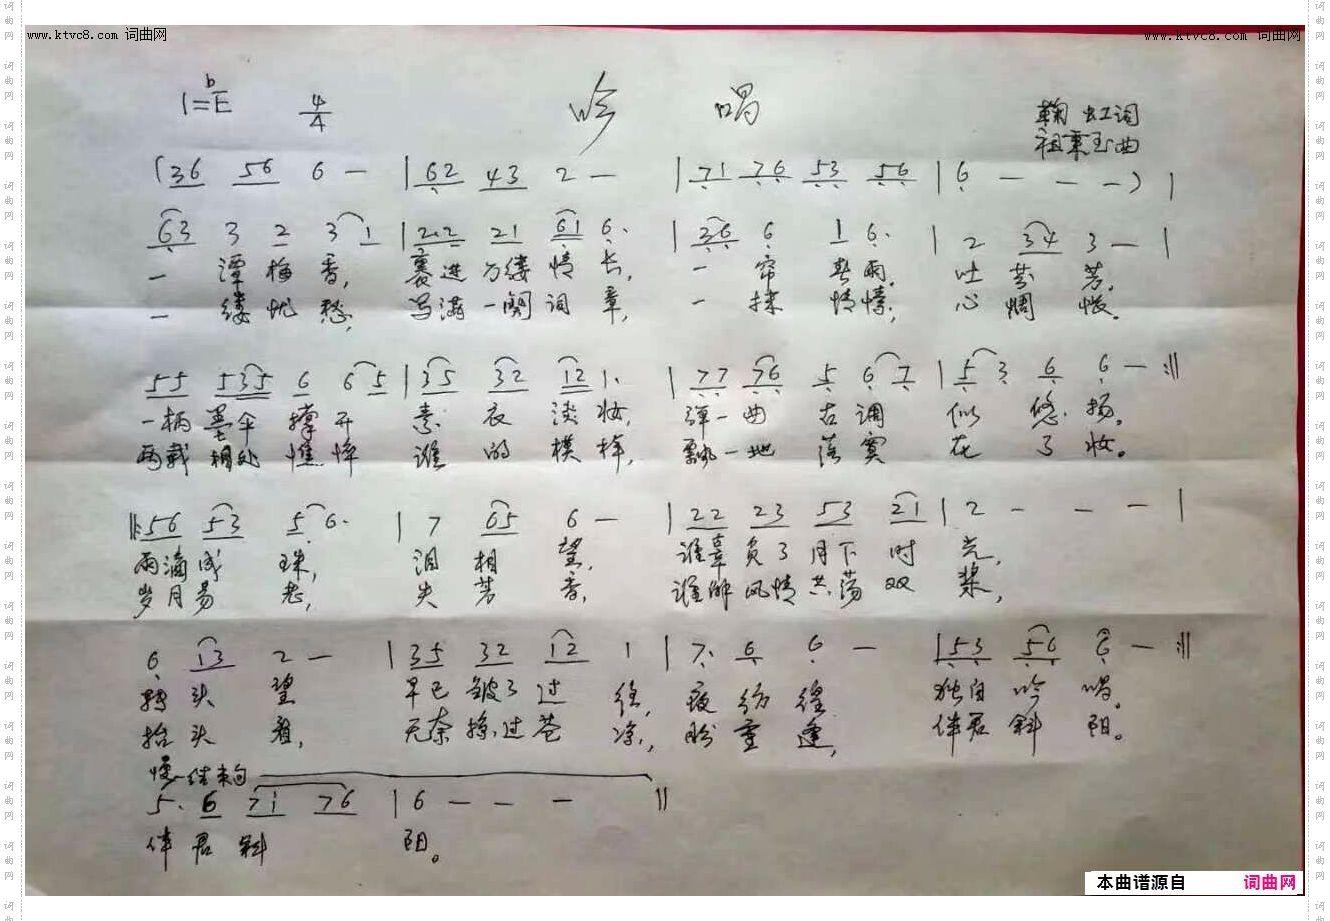 www.ktvc8.com 词曲网
www.ktvc8.com 词曲网
1=bE 4/4 吟 唱
鞠虹词
祖秉玉曲
(36 56 6 — | 62 43 2 — | 71 76 53 56 | 6 — — —) |
63 3 2 3 1 | 2·2 21 61 6· | 36 6 1 6· | 2 34 3 — |
一 潭 梅 香, 裹进 万缕 情 长, 一 帘 春雨, 吐 芬 芳。
一 缕 忧 愁, 写满 一阕 词 章, 一 抹 情愫, 心 惆 怅。
55 535 6 6 5 | 35 32 12 1· | 77 76 5 6 7 | 5 3 6 6 — :‖
一柄 墨伞 撑 开 素 衣 淡 妆, 弹一曲 古 调 似 悠 扬。
两载 相处 憔 悴 谁 的 模 样, 飘一地 落 寞 在 了 妆。
‖:56 53 5 6· | 7 65 6 — | 22 23 53 21 | 2 — — — |
雨滴 成 珠, 泪 相 望, 谁辜 负了 月下 时 光,
岁月 易 老, 失 芳 香, 谁解 风情 共荡 双 桨,
6 13 2 — | 35 32 12 1 | 7· 6 6 — | 53 56 6 — :‖
转 头 望 早已 皱了 过 往, 夜 彷 徨 独自 吟 唱。
抬 头 看, 无奈 掠过 苍 凉, 盼 重 逢, 伴君 斜 阳。
慢—结束句
5· 6 71 76 | 6 — — — ‖
伴 君 斜 阳。
本曲谱源自 词曲网